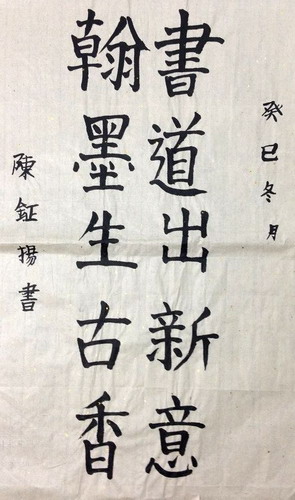 癸巳冬月
書道出新意
翰墨生古香
陳鉦揚書